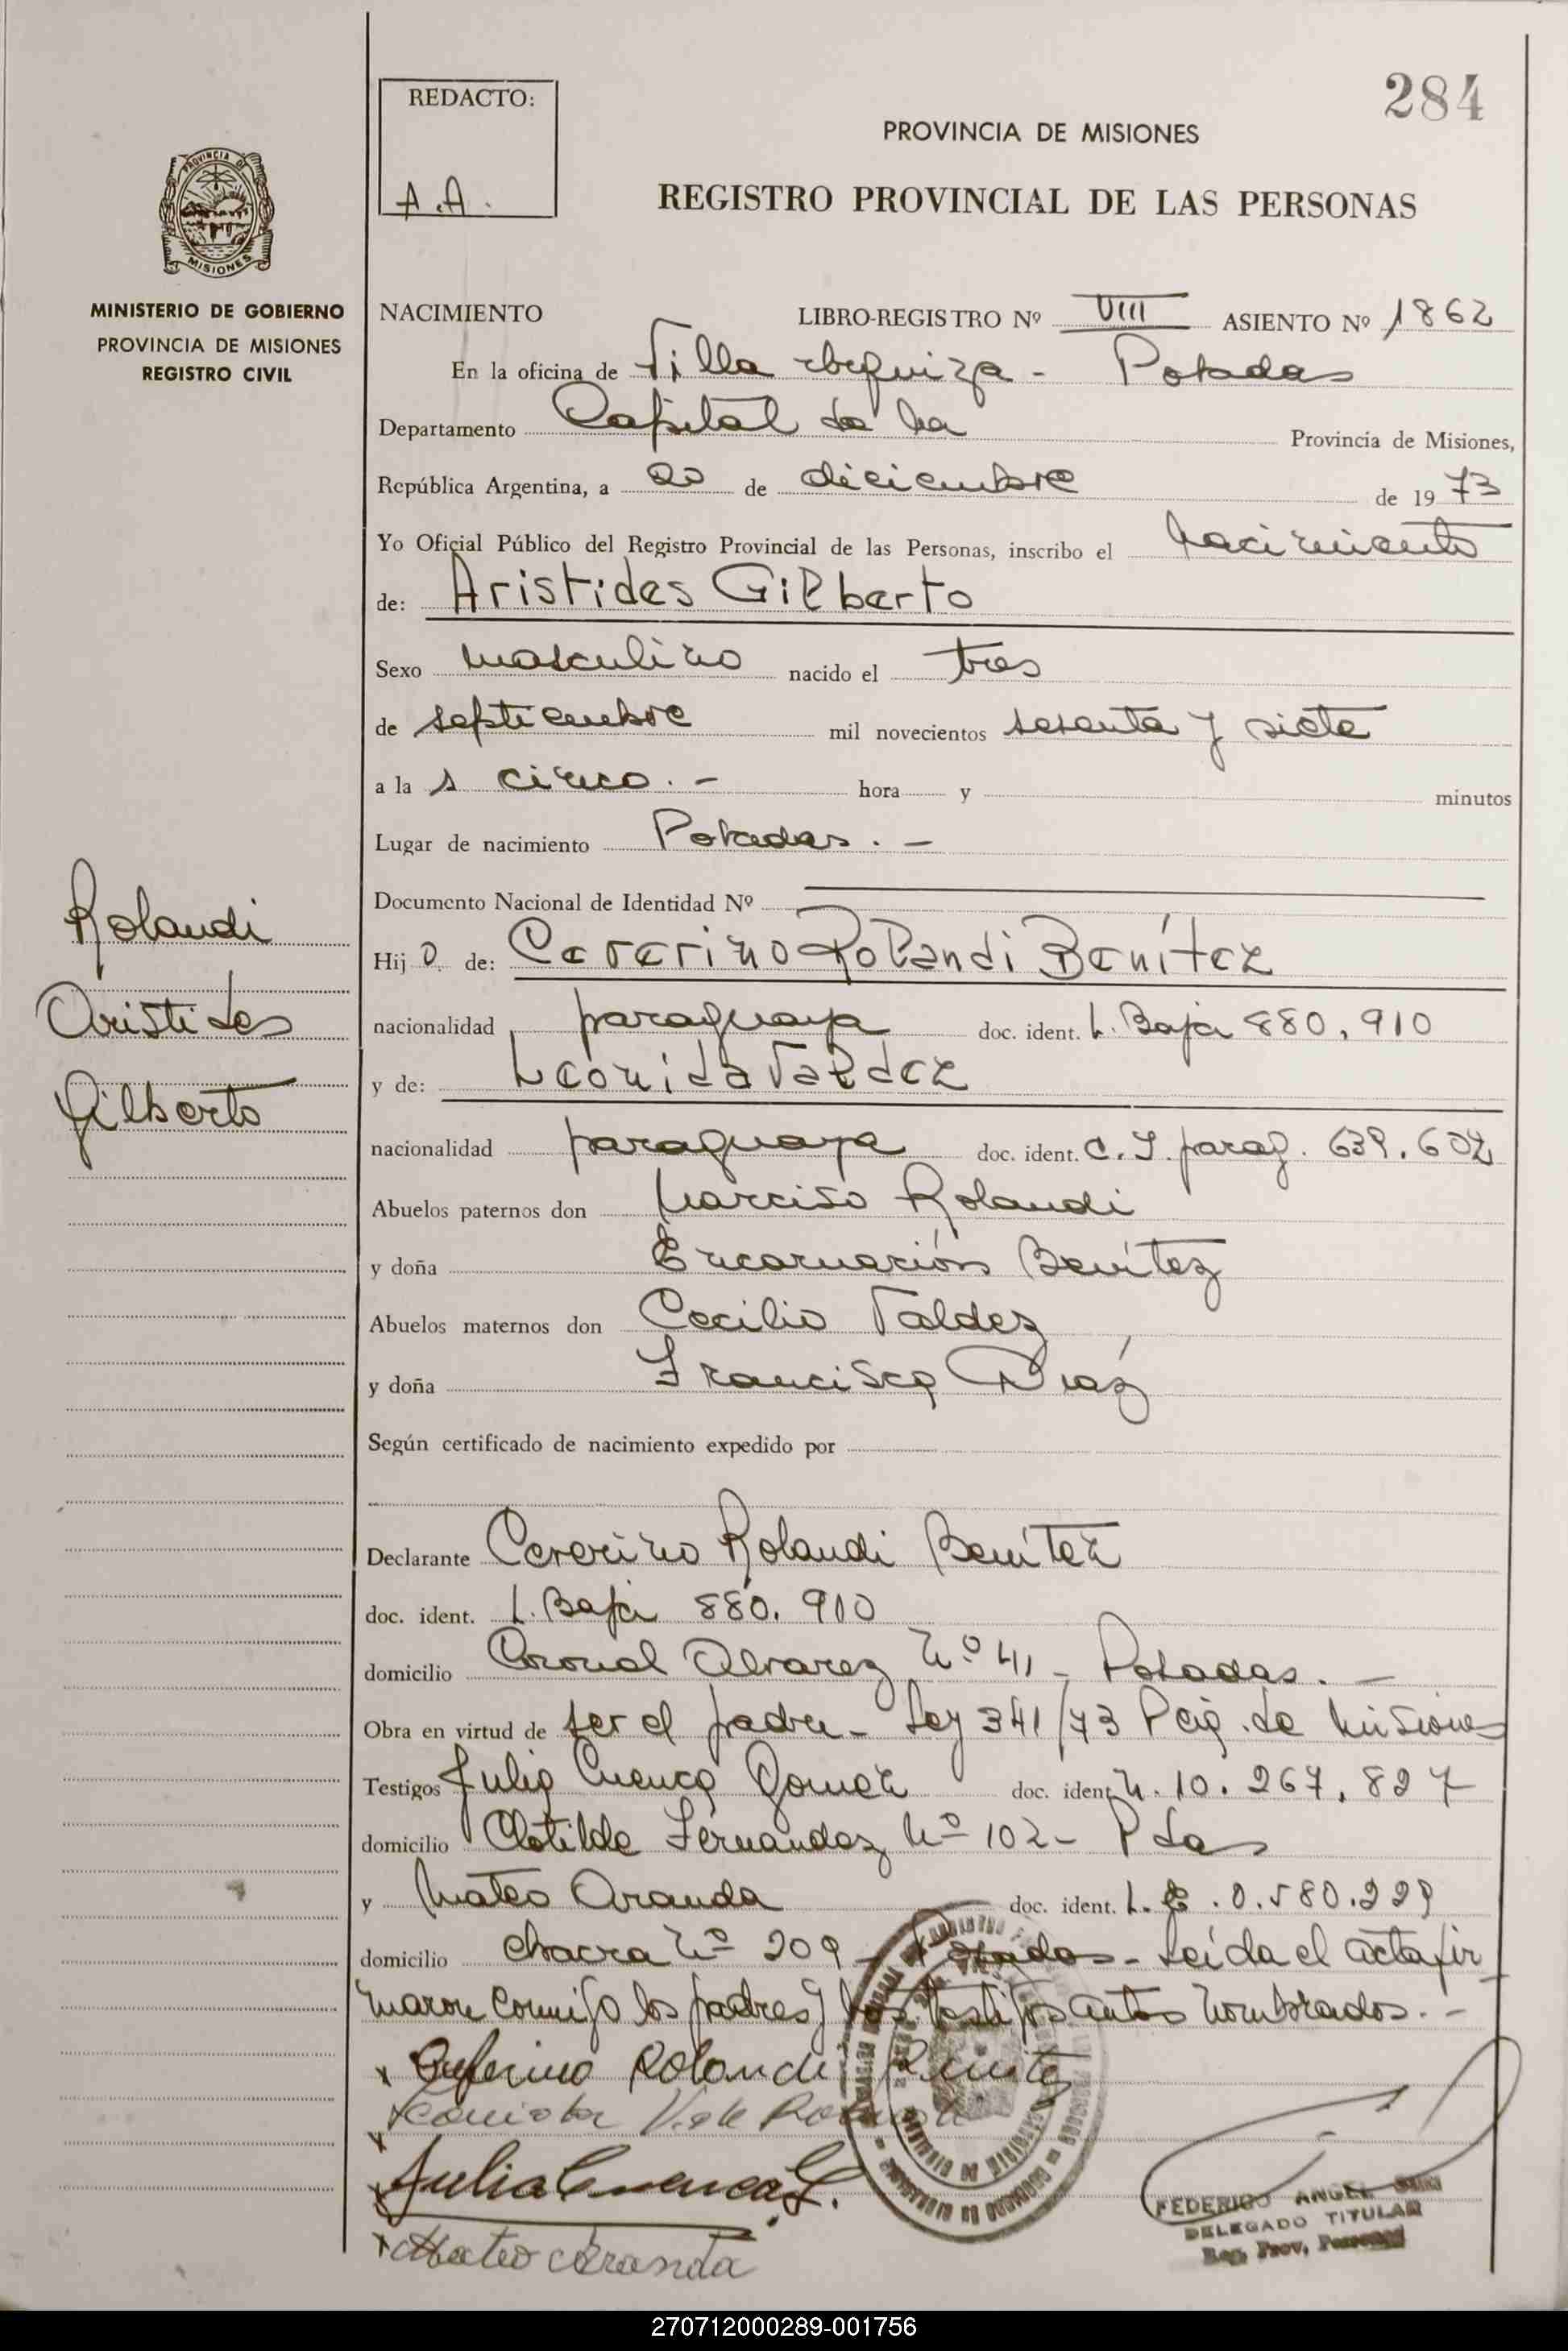 284
REDACTO:
A.A.
PROVINCIA DE MISIONES
REGISTRO PROVINCIAL DE LAS PERSONAS
PROVINCIA DE
MISIONES
MINISTERIO DE GOBIERNO
PROVINCIA DE MISIONES
REGISTRO CIVIL
NACIMIENTO LIBRO-REGISTRO Nº VIII ASIENTO Nº 1862
En la oficina de Villa Posadas
Departamento Capital de la Provincia de Misiones,
República Argentina, a 20 de diciembre de 1973
Yo Oficial Público del Registro Provincial de las Personas, inscribo el nacimiento
de: Aristides Gilberto
Sexo masculino nacido el tres
de septiembre mil novecientos sesenta y siete
a la s cinco.- hora y minutos
Lugar de nacimiento Posadas.-
Documento Nacional de Identidad Nº
Hij o de: Ceferino Rolandi Benítez
nacionalidad paraguaya doc. ident. L. Baja 880.910
y de: Leonida Valdez
nacionalidad paraguaya doc. ident. C.I. parag. 639.602
Abuelos paternos don Narciso Rolandi
y doña Encarnación Benítez
Abuelos maternos don Cecilio Valdez
y doña Francisca Díaz
Según certificado de nacimiento expedido por
Rolandi
Aristides
Gilberto
Declarante Ceferino Rolandi Benítez
doc. ident. L. Baja 880.910
domicilio Coronel Alvarez Nº 41 - Posadas.-
Obra en virtud de ser el padre - Ley 341/73 de Misiones
Testigos Julia Cuenca Gomez doc. ident. N. 10.267.827
domicilio Clotilde Fernandez Nº 102 - Pdas
y Mateo Aranda doc. ident. L.E. 0.580.229
domicilio chacra Nº 209 - Posadas - Leída el acta fir
maron conmigo los padres y los testigos antes nombrados.-
x Ceferino Rolandi Benitez
x Julia Cuenca G.
x Mateo Aranda
FEDERICO ANGEL
DELEGADO TITULAR
Reg. Prov. Personas
270712000289-001756